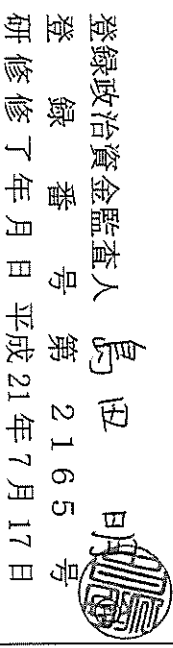 登録政治資金監査人 島田 明
登録番号 第2165号
研修修了年月日 平成21年7月17日